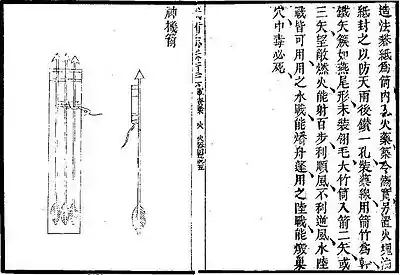 造法礬紙為筒內入火藥築令滿實另置火塊油
紙封之以防天雨後鑽一孔裝藥線用箭竹為幹
鐵矢簇如燕尾形末裝翎毛大竹筒入箭二矢或
三矢望敵燃火能射百步利順風不利逆風水陸
戰皆可用用之水戰能燔舟篷用之陸戰能燬巢
穴中毒必死
神機箭